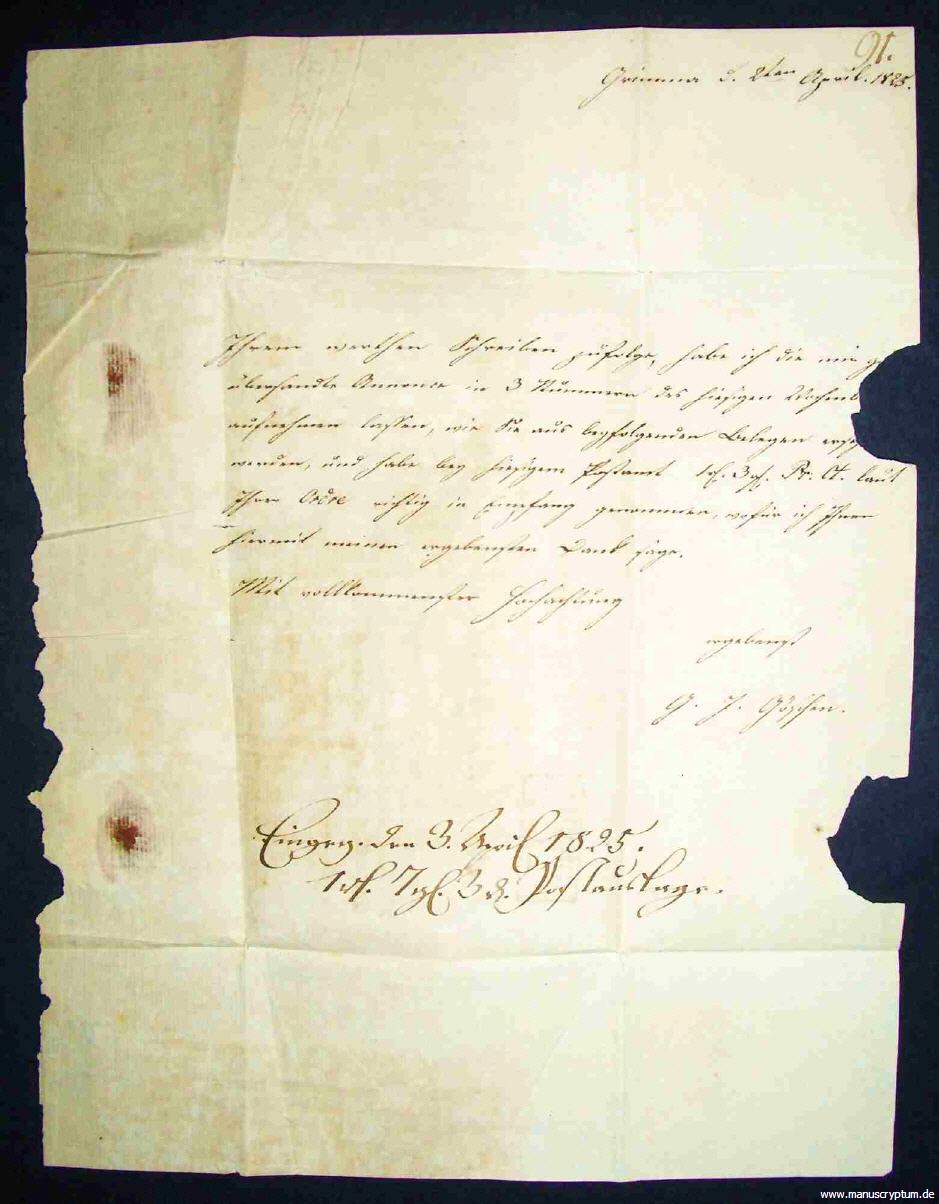 91.
Grimma d. 2ten April. 1825.
Ihrem werthen Schreiben zufolge, habe ich die mir
übersandte Annonce in 3 Nummern des hiesigen Wochenb
aufnehmen lassen, wie Sie aus beyfolgenden Belegen erse
werden, und habe bey hiesigem Postamt 1 rf. 3 gf. Pr. Ct. laut
Ihrer Ordre richtig in Empfang genommen, wofür ich Ihnen
hiermit meinen ergebensten Dank sage.
Mit vollkommenster Hochachtung
ergebenst
G. J. Göschen.
Eingeg. den 3. April 1825.
1 rf. 7 gf. 3 d. Postauslage.
www.manuscryptum.de